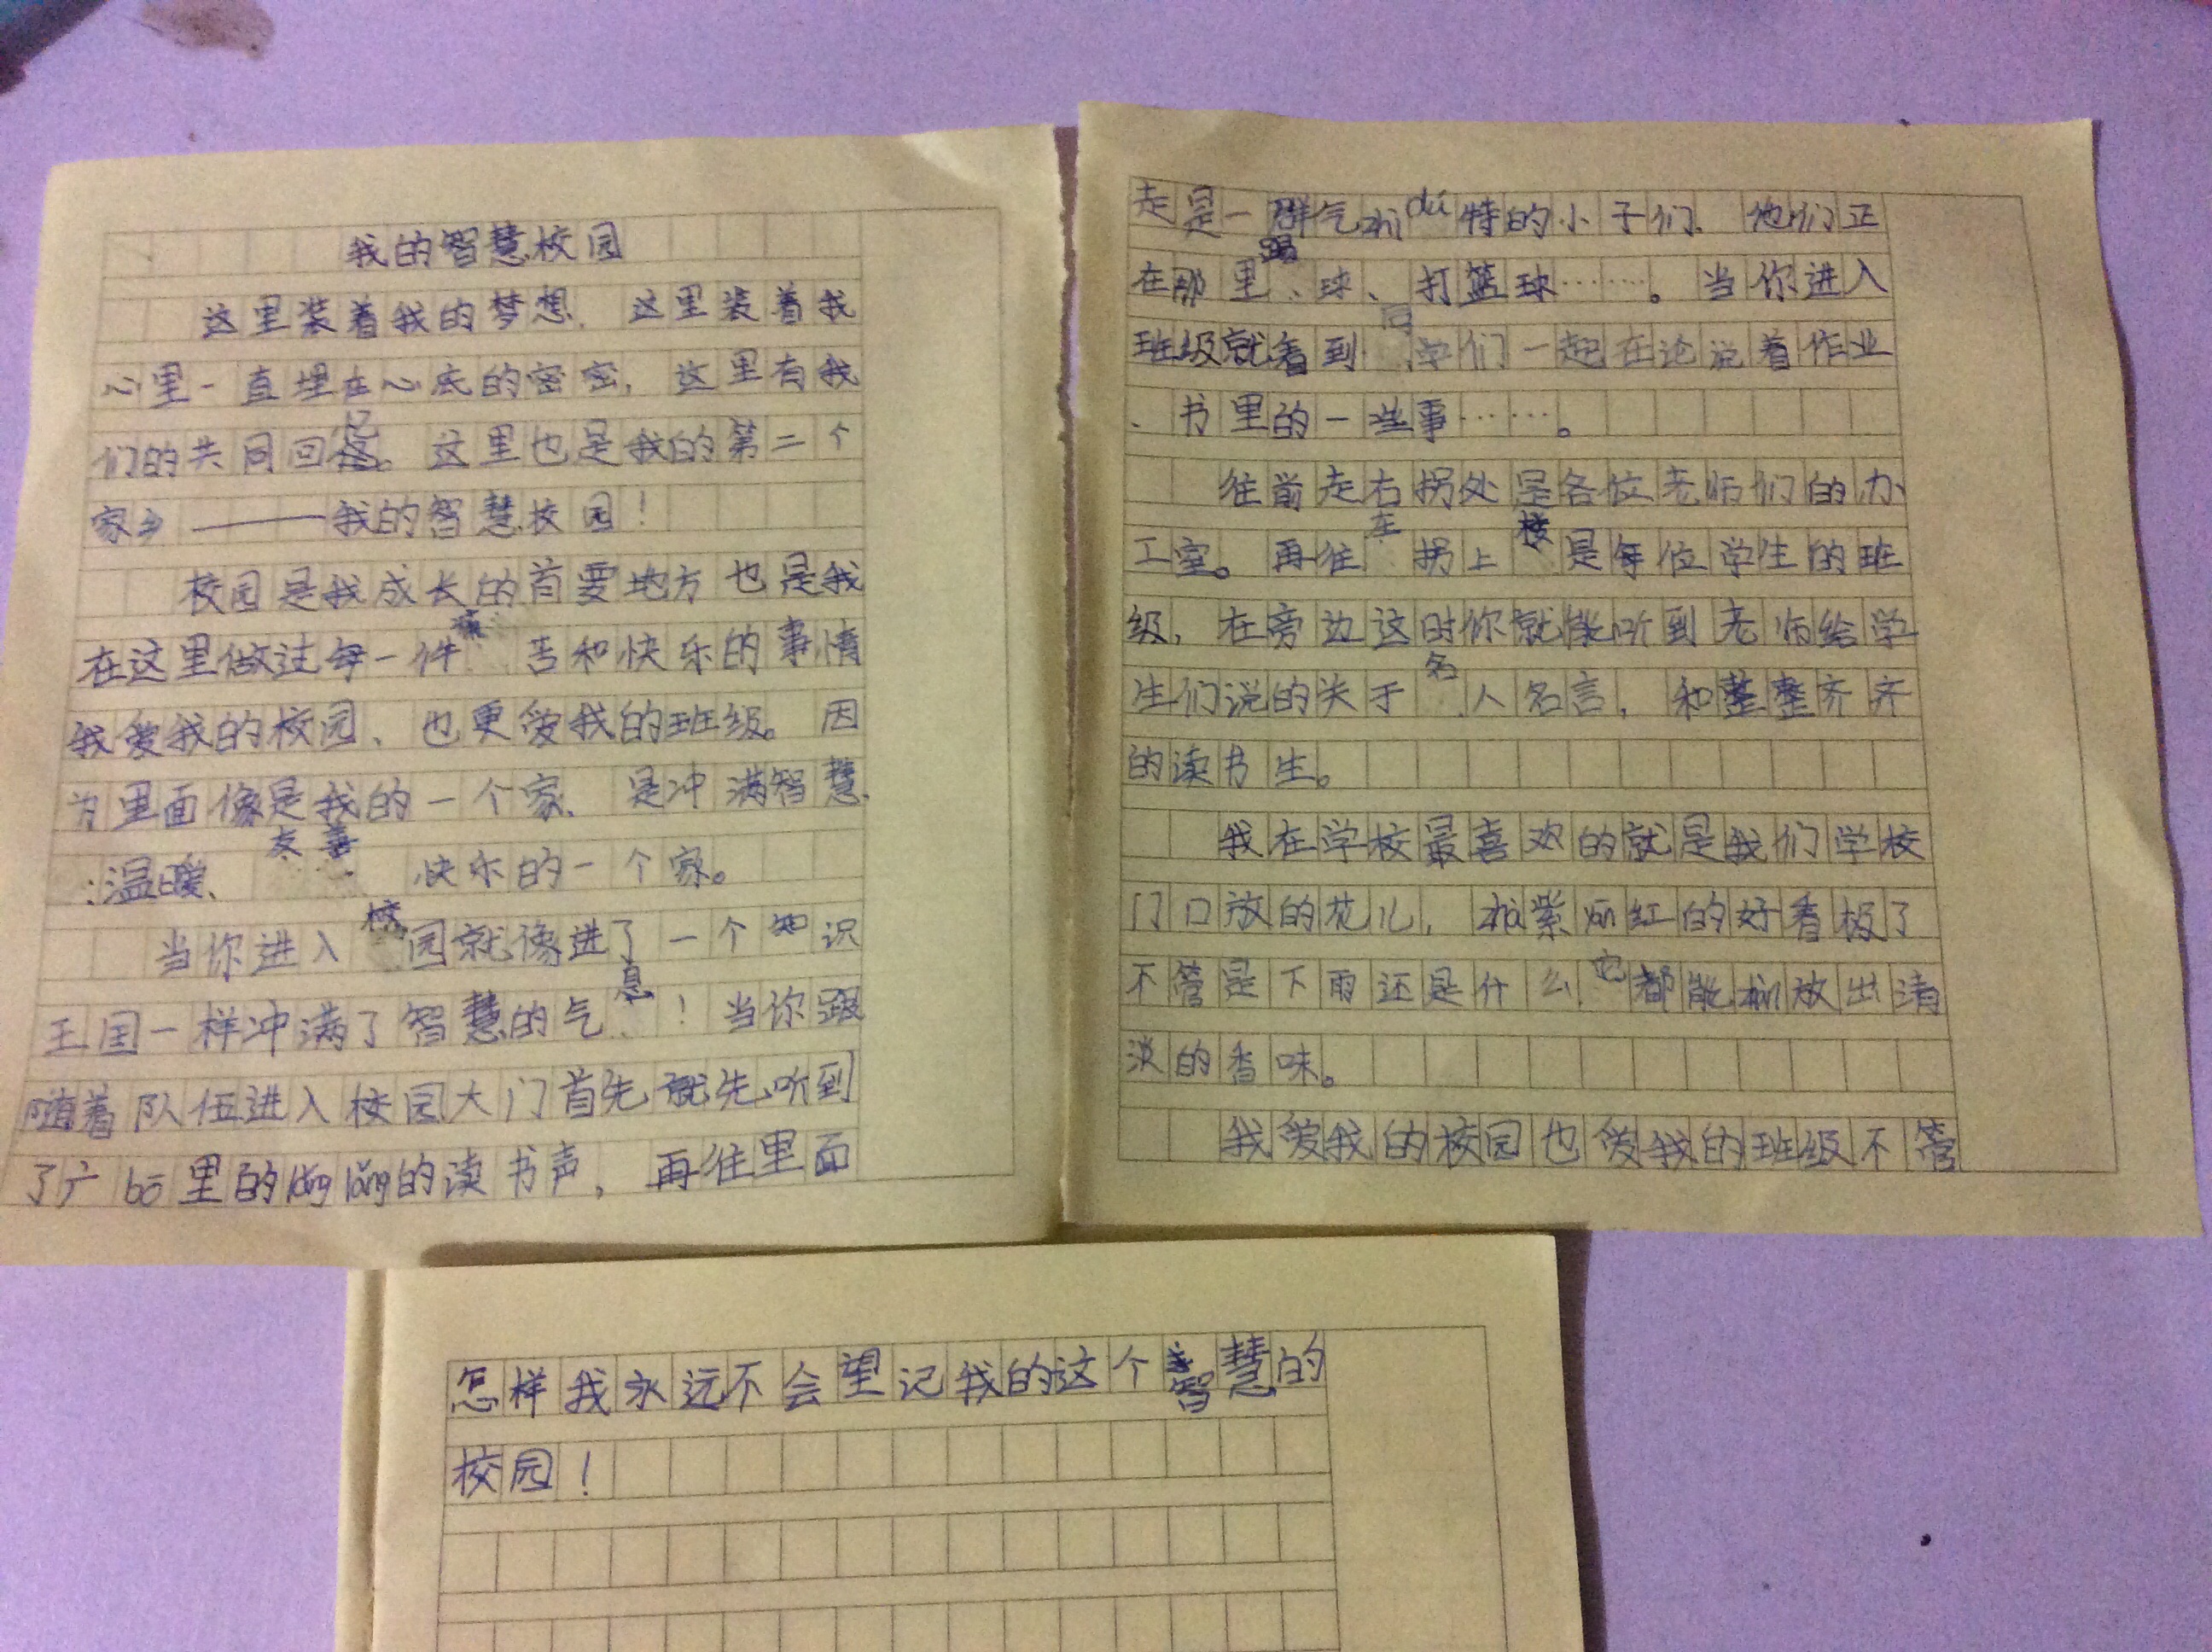 我的智慧校园
这里装着我的梦想、这里装着我
心里一直埋在心底的密密，这里有我
们的共同回忆。这里也是我的第二个
家乡———我的智慧校园！
校园是我成长的首要地方也是我
在这里做过每一件痛苦和快乐的事情
我爱我的校园、也更爱我的班级。因
为里面像是我的一个家、是冲满智慧、
温暖、友善 快乐的一个家。
当你进入校园就像进了一个知识
王国一样冲满了智慧的气息！当你跟
随着队伍进入校园大门首先就先听到
了广bō里的lǎng lǎng的读书声，再往里面
走是一群气zhì dú特的小子们、他们正
在那里踢球、打篮球……。当你进入
班级就看到同学们一起在论说着作业
、书里的一些事……。
往前走右拐处是各位老师们的办
工室。再往左拐上楼是每位学生的班
级，在旁边这时你就能听到老师给学
生们说的关于名人名言，和整整齐齐
的读书生。
我在学校最喜欢的就是我们学校
门口放的花儿，紫 红的好看极了
不管是下雨还是什么它都能 放出清
淡的香味。
我爱我的校园也爱我的班级不管
怎样我永远不会望记我的这个智慧的
校园！